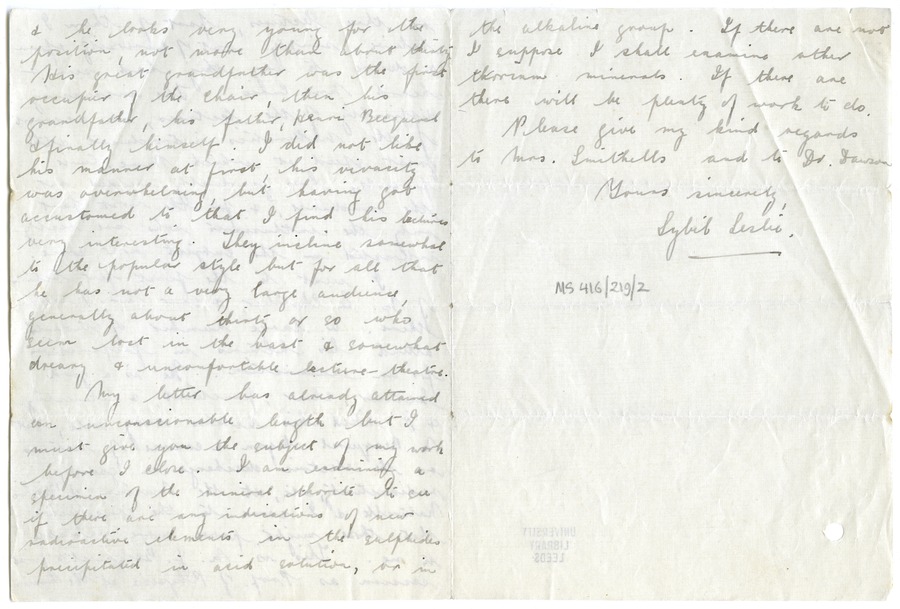 & he looks very young for the
position, not more than about thirty.
His great grandfather was the first
occupier of the chair, then his
grandfather, his father, Henri Becquerel
& finally himself. I did not like
his manner at first, his vivacity
was overwhelming, but having got
accustomed to that I find his lectures
very interesting. They incline somewhat
to the popular style but for all that
he has not a very large audience,
generally about thirty or so who
seem lost in the vast & somewhat
dreary & uncomfortable lecture-theatre.
My letter has already attained
an unconscionable length but I
must give you the subject of my work
before I close. I am examining a
specimen of the mineral thorite to see
if there are any indications of new
radioactive elements in the sulphides
precipitated in acid solution, or in
the alkaline group. If there are not
I suppose I shall examine other
thorium minerals. If there are
there will be plenty of work to do.
Please give my kind regards
to Mrs. Smithells and to Dr. Dawson
Yours sincerely,
Sybil Leslie.
MS 416/219/2
UNIVERSITY
LIBRARY
LEEDS